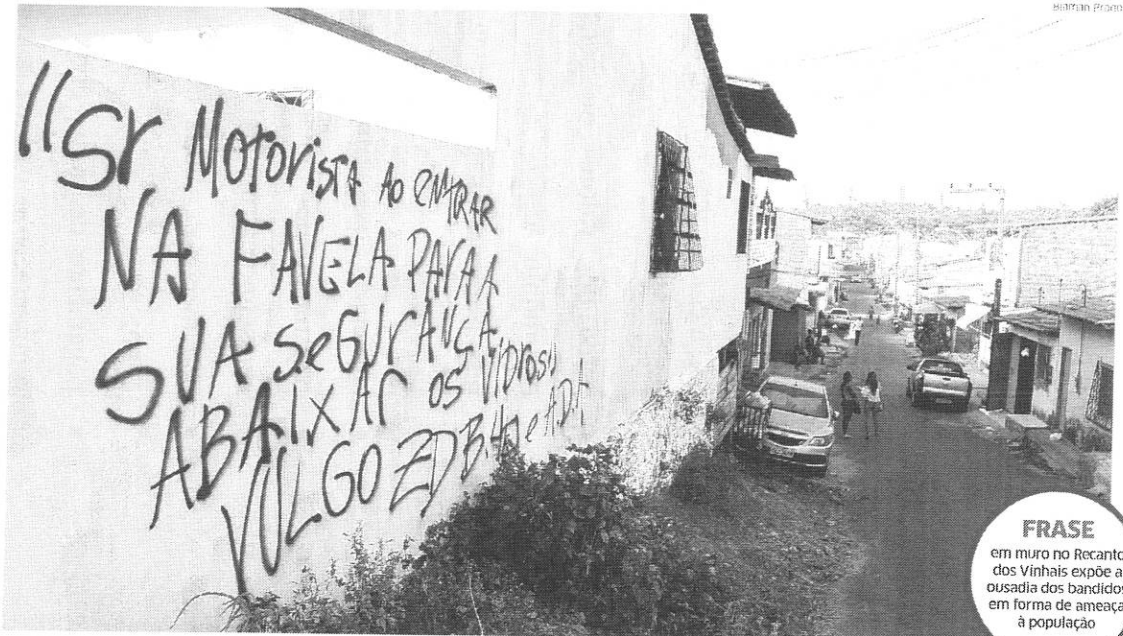 "Sr Motorista Ao eNtRAR
NA FAVELA PArA A
SUA SeGUrANÇA
ABAIXAr OS VidroS"
VULGO ZDB. e ADA
FRASE
em muro no Recanto
dos Vinhais expõe a
ousadia dos bandidos
em forma de ameaça
à população